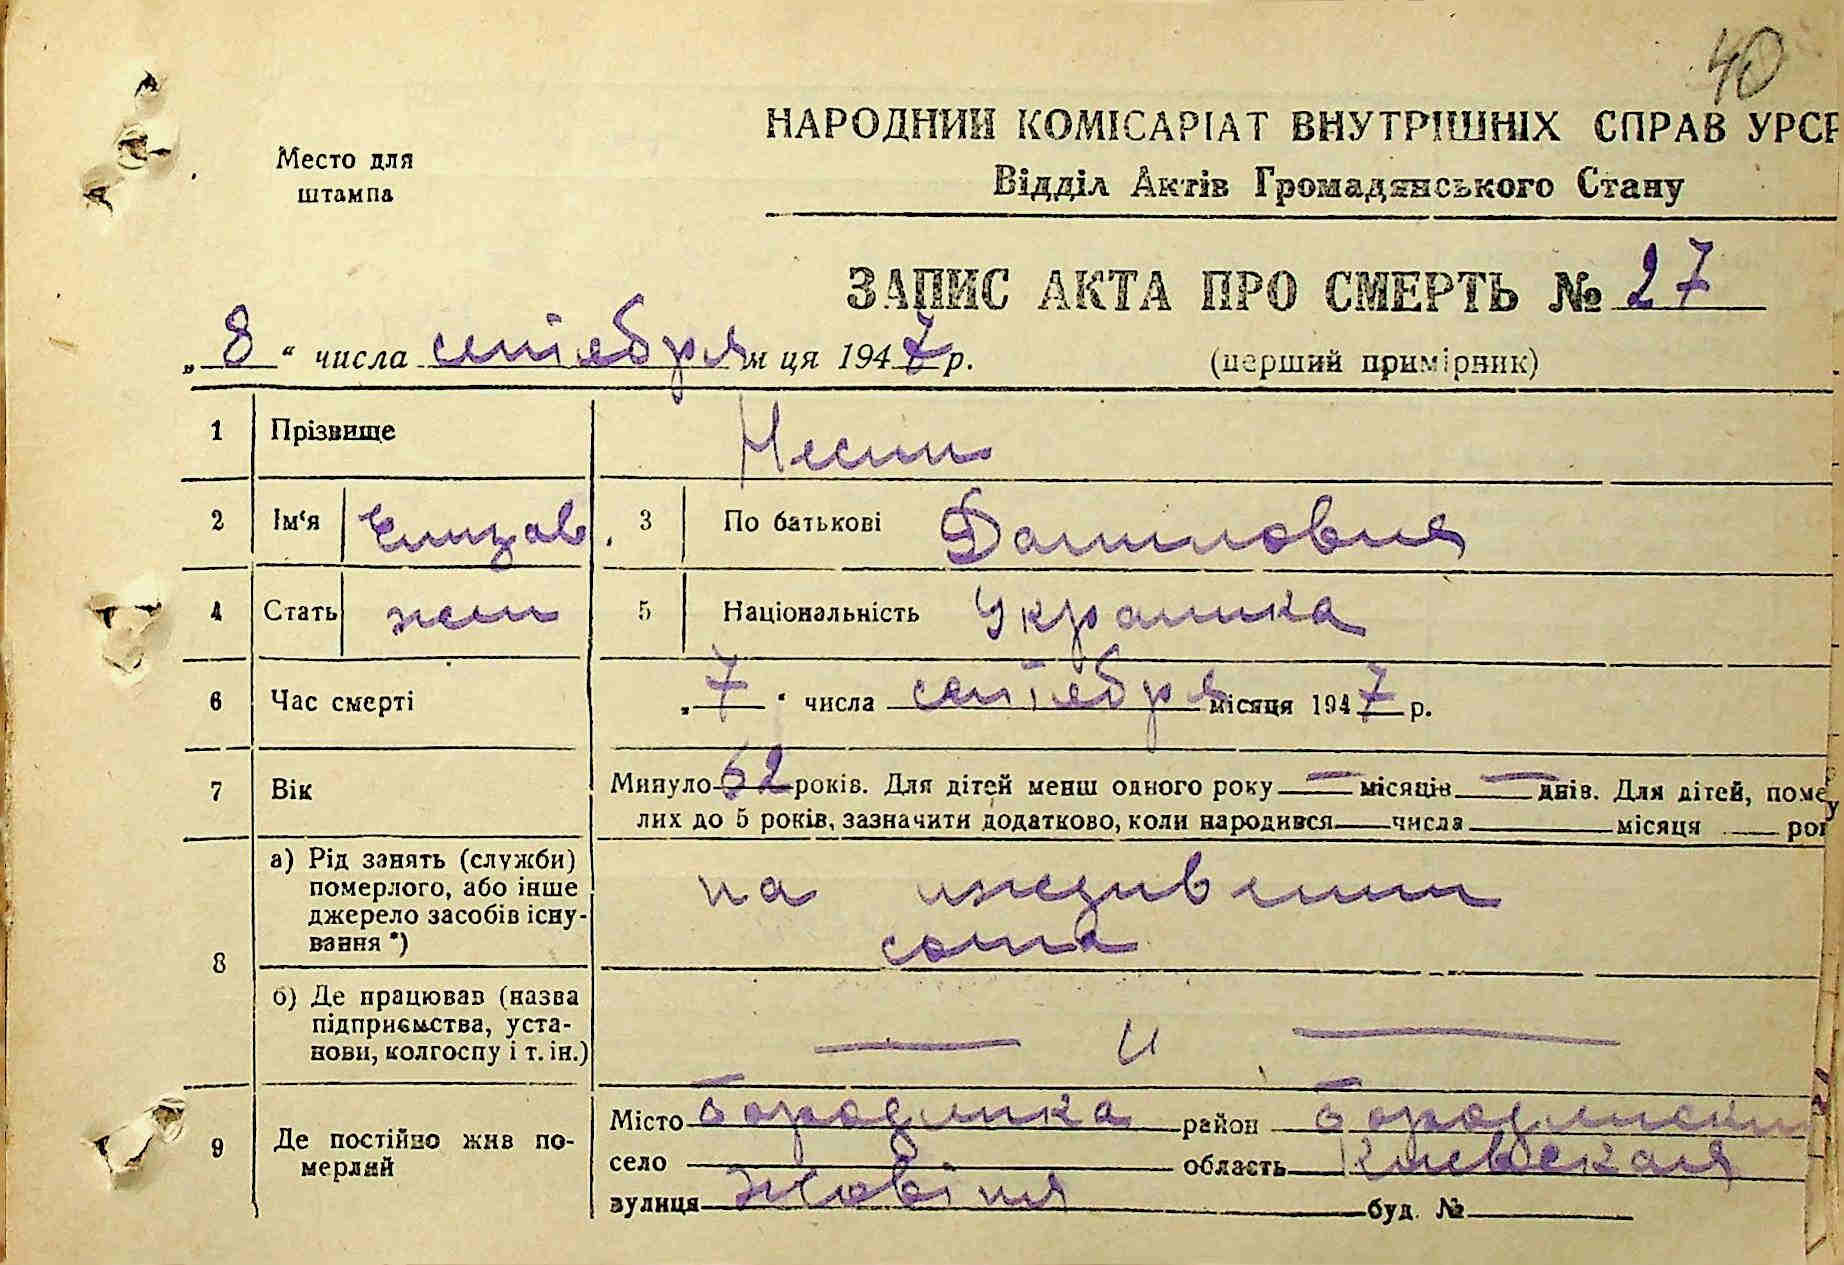 40
НАРОДНИЙ КОМІСАРІАТ ВНУТРІШНІХ СПРАВ УРСР
Место для штампа
Відділ Актів Громадянського Стану
ЗАПИС АКТА ПРО СМЕРТЬ № 27
„ 8 “ числа сентября м ця 1947 р. (перший примірник)
1 Прізвище
2 Ім‘я Елизав. 3 По батькові Даниловна
4 Стать жен 5 Національність Украинка
6 Час смерті „ 7 “ числа сентября місяця 1947 р.
7 Вік Минуло 62 років. Для дітей менш одного року — місяців — днів. Для дітей, поме
лих до 5 років, зазначити додатково, коли народився — числа місяця рок
8 а) Рід занять (служби) померлого, або інше джерело засобів існу-вання *) на иждивении
сына
б) Де працював (назва підприємства, уста-нови, колгоспу і т. ін.) — и —
9 Де постійно жив по-мерлий Місто Бородянка район Бородянский
село область Киевская
вулиця Жовтня буд. №